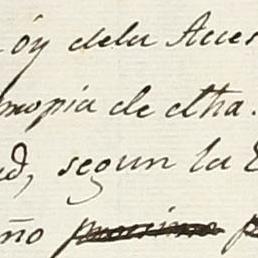 óy dela Aces
mopia de dha.
ud, segun la
ño proximo